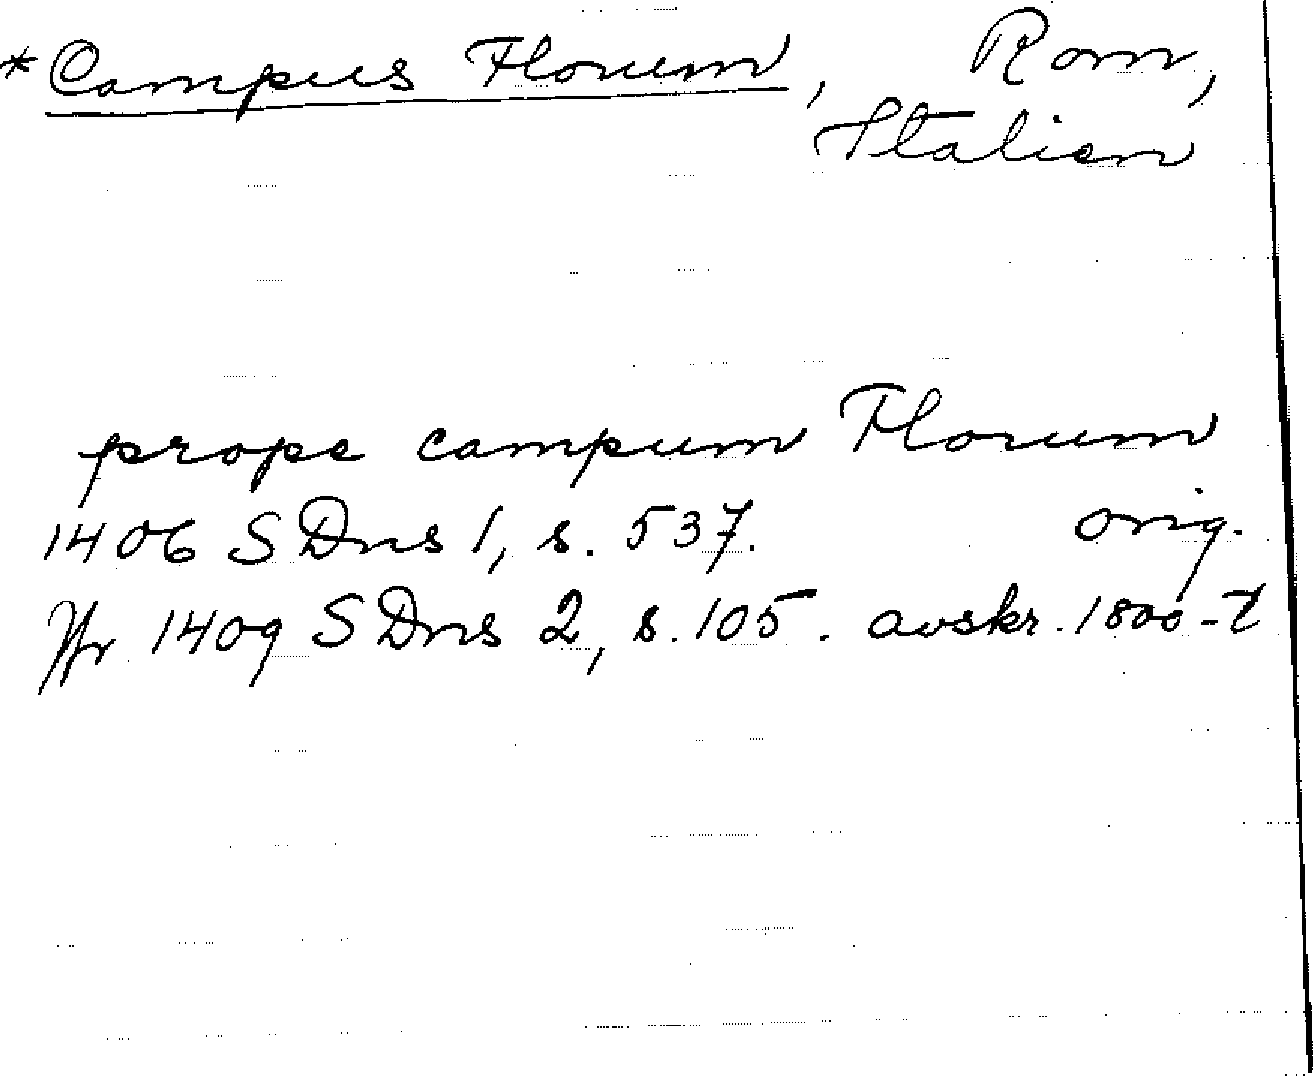 *Campus Florum, Rom,
Italien
prope campum Florum
1406 SDns 1, s. 537. orig.
Yfr 1409 SDns 2, s. 105. avskr. 1800-t